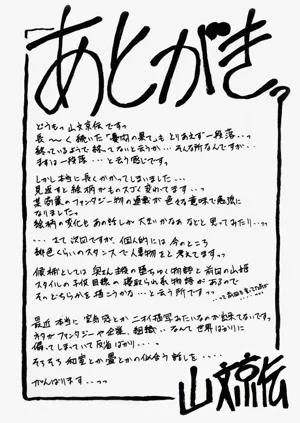 あとがきっ
どうもっ山文京伝ですっ
長〜〜く続いた「蕃肉の果て」もとりあえず一段落・・っ
終っているようで終ってないと云うか・・そんな所なんですが・・
まずは一段落・・・と云う感じですっ
しかし本当に長くかかってしまいました・・・
見返すと絵柄がものスゴく変わってます・・っ
某商業のファンタジー物の連載が色々な意味で悪張に
なりましたっ
絵柄の変化もあの話しか大きいかなあなどと思ってみたり・・っ
・・・さて次回ですが、個人的には今のところ
桃色くらいのスタンスで人妻物をと考えてますっ
候補としては奥さん様の堕ちゆく物語と前回の山姫
スタイルの子供目線の寝取られ系物語があるので
そのどちらかを描こうかな・・・と云う所ですっ・・
最近本当に実感とかニオイ描写みたいなのが出来てないですっ
ネタがファンタジーや企業、組織・・なんて世界ばかりに
偏ってしまっていて反省ばかり・・・っ
そろそろ和室とか畳とかの似合う話しを・・・・
がんばります・・っっ
山文京伝